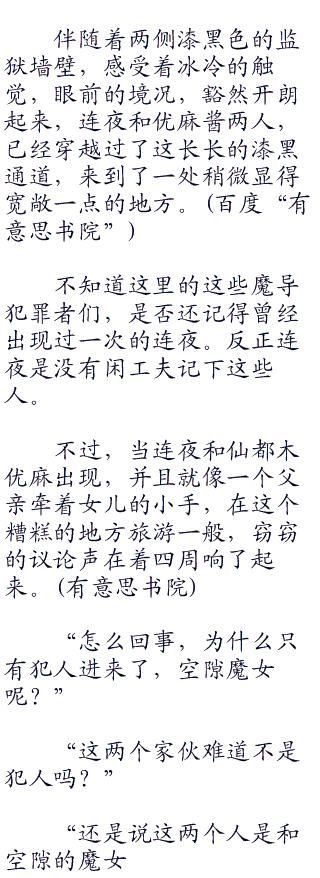 伴随着两侧漆黑色的监
狱墙壁，感受着冰冷的触
觉，眼前的境况，豁然开朗
起来，连夜和优麻酱两人，
已经穿越过了这长长的漆黑
通道，来到了一处稍微显得
宽敞一点的地方。(百度“有
意思书院”)
不知道这里的这些魔导
犯罪者们，是否还记得曾经
出现过一次的连夜。反正连
夜是没有闲工夫记下这些
人。
不过，当连夜和仙都木
优麻出现，并且就像一个父
亲牵着女儿的小手，在这个
糟糕的地方旅游一般，窃窃
的议论声在着四周响了起
来。(有意思书院)
“怎么回事，为什么只
有犯人进来了，空隙魔女
呢？”
“这两个家伙难道不是
犯人吗？”
“还是说这两个人是和
空隙的魔女